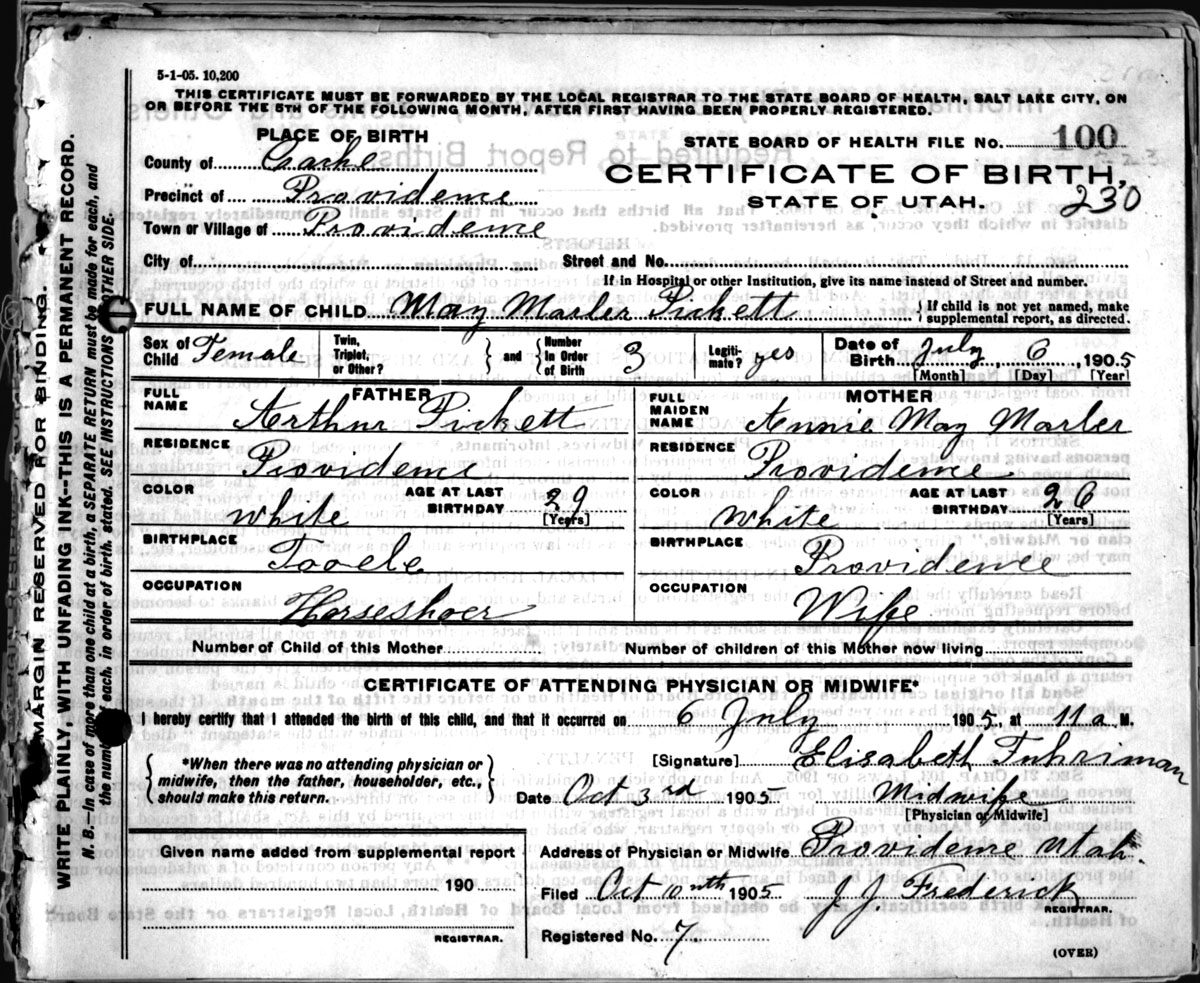 5-1-05. 10,200
THIS CERTIFICATE MUST BE FORWARDED BY THE LOCAL REGISTRAR TO THE STATE BOARD OF HEALTH, SALT LAKE CITY, ON
OR BEFORE THE 5TH OF THE FOLLOWING MONTH, AFTER FIRST HAVING BEEN PROPERLY REGISTERED.
PLACE OF BIRTH
STATE BOARD OF HEALTH FILE NO. 100
County of Cache
CERTIFICATE OF BIRTH,
Precinct of Providence
STATE OF UTAH. 230
Town or Village of Providence
City of Street and No.
If in Hospital or other Institution, give its name instead of Street and number.
FULL NAME OF CHILD May Marler Pickett { If child is not yet named, make
supplemental report, as directed.
Sex of Child Female Twin, Triplet, or Other? } and { Number in Order of Birth 3 Legiti-mate? yes Date of Birth July 6, 1905
[Month] [Day] [Year]
FATHER MOTHER
FULL NAME Arthur Pickett FULL MAIDEN NAME Annie May Marler
RESIDENCE Providence RESIDENCE Providence
COLOR white AGE AT LAST BIRTHDAY 39 [Years] COLOR white AGE AT LAST BIRTHDAY 26 [Years]
BIRTHPLACE Tooele BIRTHPLACE Providence
OCCUPATION Horseshoer OCCUPATION Wife
Number of Child of this Mother Number of children of this Mother now living
CERTIFICATE OF ATTENDING PHYSICIAN OR MIDWIFE.*
I hereby certify that I attended the birth of this child, and that it occurred on 6 July 1905, at 11 a M.
{ *When there was no attending physician or
midwife, then the father, householder, etc.,
should make this return. }
[Signature] Elisabeth Fuhriman
Date Oct 3rd 1905 Midwife
[Physician or Midwife]
Given name added from supplemental report
190
REGISTRAR.
Address of Physician or Midwife Providence Utah.
Filed Oct 10 1905 J. J. Frederick
REGISTRAR.
Registered No. 7.
(OVER)
MARGIN RESERVED FOR BINDING.
WRITE PLAINLY, WITH UNFADING INK--THIS IS A PERMANENT RECORD.
N. B.--In case of more than one child at a birth, a SEPARATE RETURN must be made for each, and
the number of each, in order of birth, stated. SEE INSTRUCTIONS OTHER SIDE.